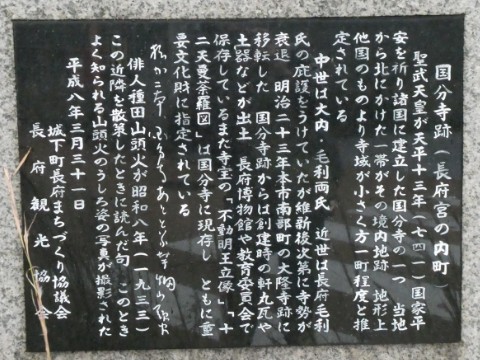 国分寺跡(長府宮の内町)
聖武天皇が天平十三年(七四一)国家平
安を祈り諸国に建立した国分寺の一つ 当地
から北にかけた一帯がその境内地跡 地形上
他国のものより寺域が小さく方一町程度と推
定されている
中世は大内・毛利両氏 近世は長府毛利
氏の庇護をうけていたが維新後次第に寺勢が
衰退 明治二十三年本市南部町の大隆寺跡に
移転した 国分寺跡からは創建時の軒丸瓦や
土器などが出土 長府博物館や教育委員会で
保存しているまた寺宝の「不動明王立像」「十
二天曼荼羅図」は国分寺に現存し ともに重
要文化財に指定されている
俳人種田山頭火が昭和八年(一九三三)
この近隣を散策したときに読んだ句 このとき
よく知られる山頭火のうしろ姿の写真が撮影された
平成八年三月三十一日
城下町長府まちづくり協議会
長府観光協会